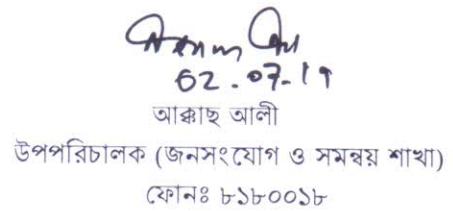 ০2.০7-19
আক্কাছ আলী
উপপরিচালক (জনসংযোগ ও সমন্বয় শাখা)
ফোনঃ ৮১৮০০১৮